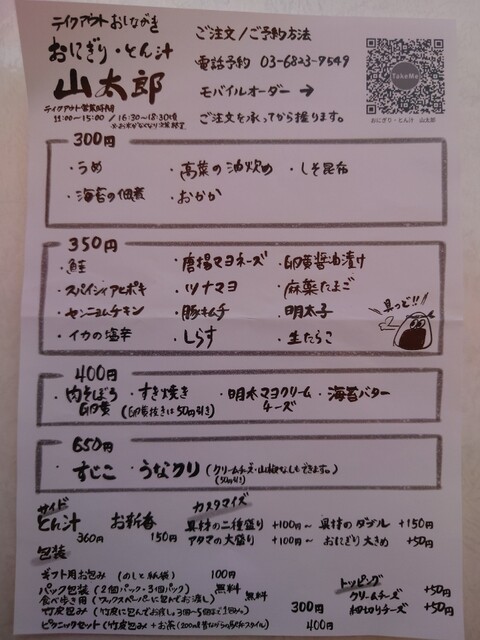 テイクアウトおしながき
おにぎり・とん汁
山太郎
テイクアウト営業時間
11:00〜15:00 / 16:30〜18:30頃
ご注文/ご予約方法
電話予約 03-6823-9549
モバイルオーダー →
ご注文を承ってから握ります。
TakeMe
おにぎり・とん汁 山太郎
300円
・うめ ・高菜の油炒め ・しそ昆布
・海苔の佃煮 ・おかか
350円
・鮭 ・唐揚マヨネーズ ・卵黄醤油漬け
・スパイシィアヒポキ ・ツナマヨ ・麻薬たまご
・センニョムチキン ・豚キムチ ・明太子
・イカの塩辛 ・しらす ・生たらこ
具っど!!
400円
・肉そぼろ卵黄 ・すき焼き ・明太マヨクリームチーズ ・海苔バター
(卵黄抜きは50円引き)
650円
・すじこ ・うなクリ (クリームチーズ・山椒なしもできます。)
(50円引き)
サイド
とん汁 お新香
360円 150円
カスタマイズ
具材の二種盛り +100円〜 具材のダブル +150円
アタマの大盛り +100円〜 おにぎり大きめ +50円
包装
ギフト用お包み (のしと紙袋) 100円
パック包装 (2個パック・3個パック) 無料
食べ歩き用 (ワックスペーパーに包んでお渡し) 無料
竹皮包み (竹皮に包んでお渡し。3個〜5個まで包めます) 300円
ピクニックセット (竹皮包み+お茶 (200ml 400円
トッピング
クリームチーズ +50円
細切りチーズ +50円